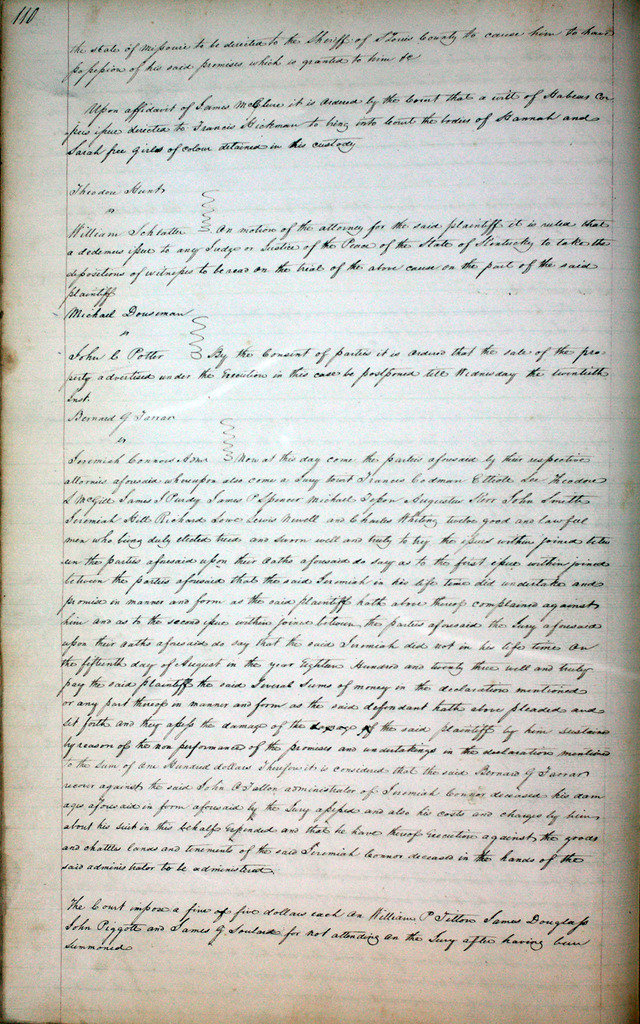 110
the state of Missouri to be directed to the Sheriff of St Louis County to cause him to have
possession of his said premises which is granted to him &c
Upon affidavit of James McGlure it is ordered by the Court that a writ of Habeas Cor
pus issue directed to Francis Hickman to bring into Court the bodies of Hannah and
Sarah free girls of colour detained in his custody
Theodore Hunt
vs
William Schlatter On motion of the attorney for the said plaintiff it is ruled that
a dedemus issue to any Judge or Justice of the Peace of the State of Kentucky to take the
depositions of witnesses to be read on the trial of the above cause on the part of the said
plaintiff
Michael Douseman
vs
John C Potter By the Consent of parties it is ordered that the sale of the pro
perty advertised under the Execution in this case be postponed till Wednesday the twentieth
Inst.
Bernard G Farrar
vs
Jeremiah Connors Admr Now at this day come the parties aforesaid by their respective
attornies aforesaid whereupon also come a Jury towit Francis Codman Elliott Lee Theodore
L McGill James J Purdy James P Spencer Michael Augustus Kerr John Smith
Jeremiah Hill Richard Lowe Lewis Newell and Charles Whiting twelve good and lawful
men who being duly elected tried and sworn well and truly to try the issues within joined betw
een the parties aforesaid upon their Oaths aforesaid do say as to the first issue within joined
between the parties aforesaid that the said Jeremiah in his life time did undertake and
promise in manner and form as the said plaintiff hath above thereof complained against
him and as to the second issue within joined between the parties aforesaid the Jury aforesaid
upon their oaths aforesaid do say that the said Jeremiah did not in his life time on
the fifteenth day of August in the year Eighteen Hundred and twenty three well and truly
pay the said plaintiff the said several sums of money in the declaration mentioned
or any part thereof in manner and form as the said defendant hath above pleaded and
set forth and they assess the damage of the said plaintiff by him sustained
by reason of the non performance of the promises and undertakings in the declaration mentioned
to the sum of One Hundred dollars Therefore it is considered that the said Bernard G Farrar
recover against the said John O Fallon administrator of Jeremiah Connor deceased his dam
ages aforesaid in form aforesaid by the Jury assessed and also his costs and charges by him
about his suit in this behalf Expended and that he have thereof Execution against the goods
and chattles lands and tenements of the said Jeremiah Connor deceased in the hands of the
said administrator to be administered.
The Court impose a fine of five dollars each on William P Tilton James Douglass
John Piggott and James G Soulard for not attending on the Jury after having been
summoned